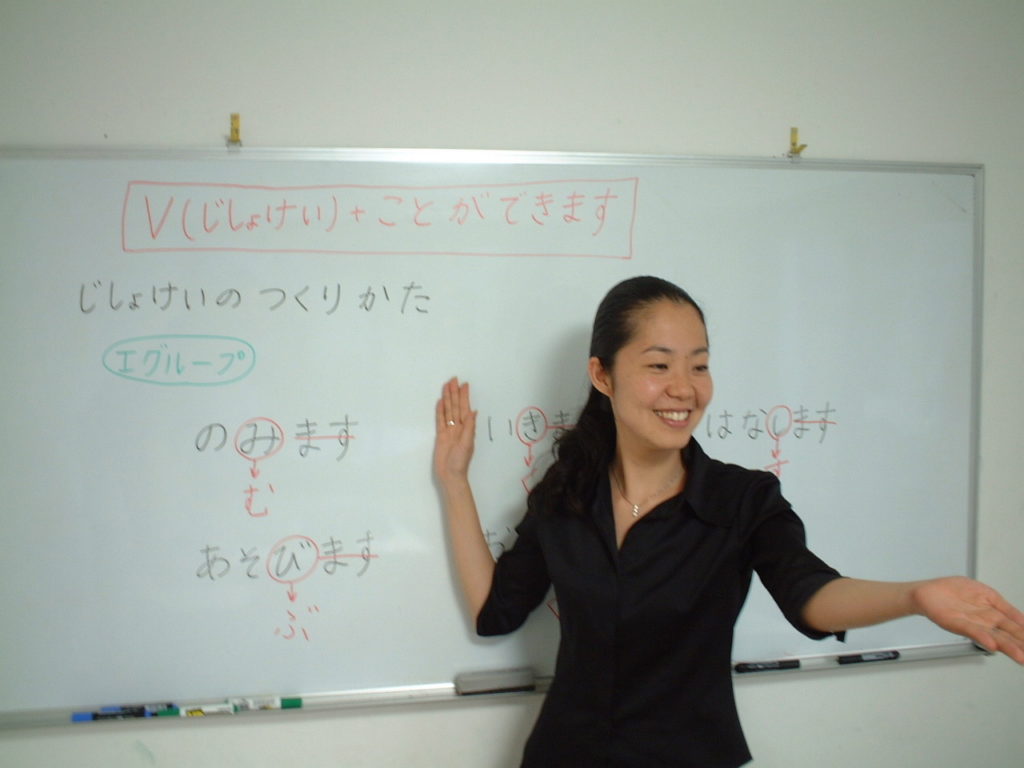 V(じしょけい)+ことができます
じしょけいのつくりかた
Iグループ
のみます いきま はなします
む く す
あそびます
ぶ